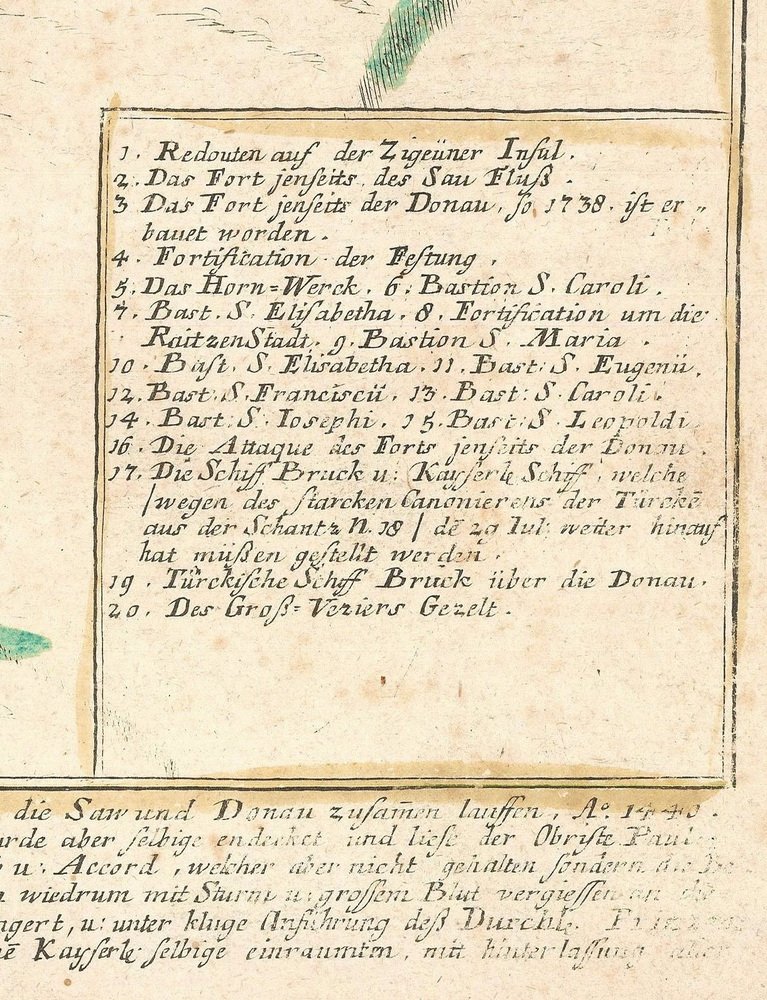 1. Redouten auf der Zigeüner Insul.
2. Das Fort jenseits des Sau Fluß.
3 Das Fort jenseits der Donau, so 1738. ist er„
bauet worden.
4. Fortification der Festung.
5. Das Horn=Werck. 6. Bastion S. Caroli.
7. Bast. S. Elisabetha. 8. Fortification um die
RaitzenStadt. 9. Bastion S. Maria.
10. Bast. S. Elisabetha. 11. Bast: S. Eugenii.
12. Bast. S. Franciscii. 13. Bast: S. Caroli.
14. Bast: S. Iosephi. 15. Bast: S. Leopoldi
16. Die Attaque des Forts jenseits der Donau.
17. Die Schiff Bruck u: Kayserle Schiff, welche
/wegen des starcken Canonierens der Türckē
aus der Schantz N. 18 / dē 29 Iul: weiter hinauf
hat müßen gestellt werden.
19. Türckische Schiff Bruck über die Donau.
20. Des Groß=Veziers Gezelt.
die Saw und Donau zusam̄en lauffen, Aº. 1440.
aber selbige endecket und liese der Obriste Paul
u. Accord, welcher aber nicht gehalten sondern die
wiedrum mit Sturm u: grossem Blut vergiessen an
gert, u: unter kluge Anführung deß Durchl.
Kayserle selbige einraumten, mit hinterlassung aller